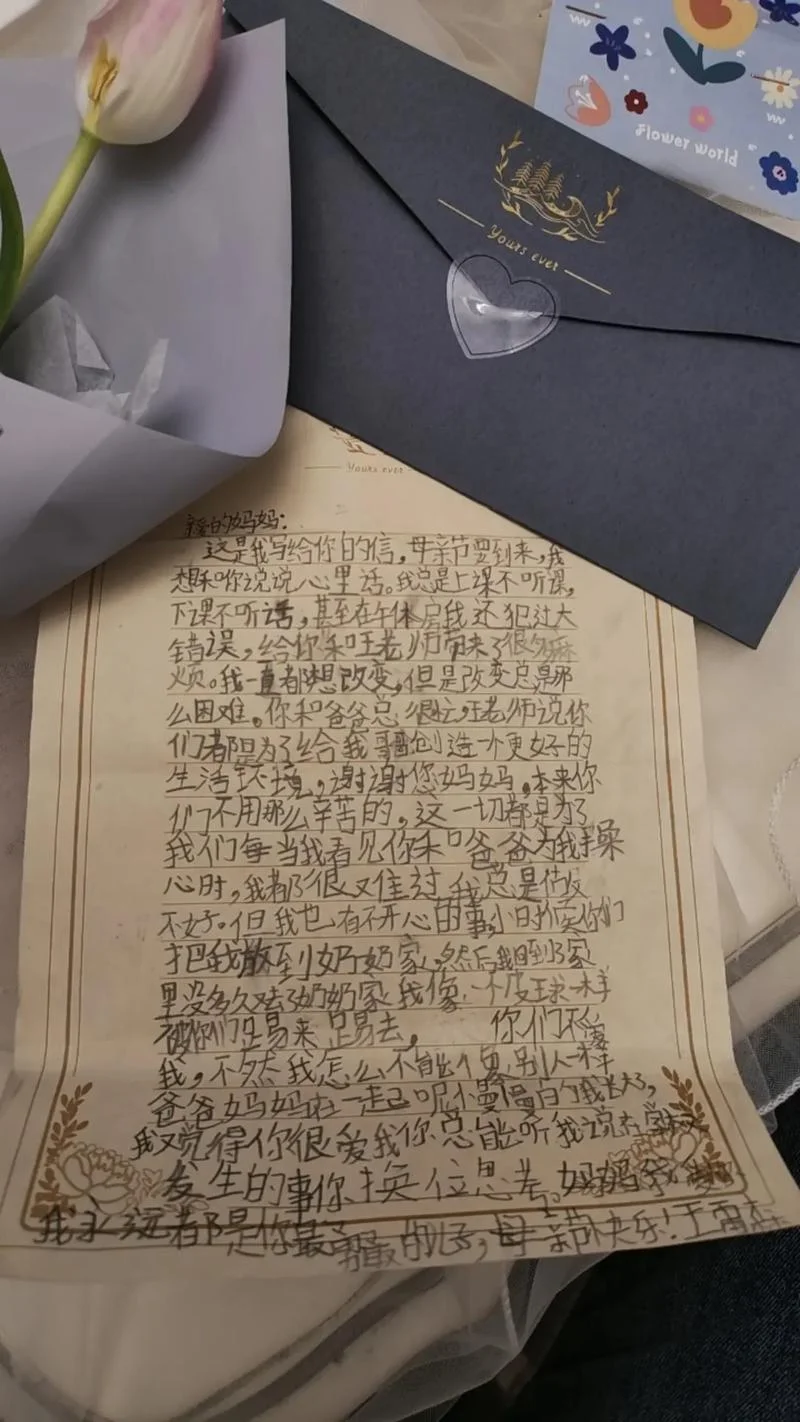 Flower world
Yours ever
Yours ever
亲爱的妈妈：
这是我写给你的信，母亲节要到来，我
想和你说说心里话。我总是上课不听课，
下课不听话，甚至在午休房我还犯过大
错误，给你和旺老师带来了很多麻
烦。我一直都想改变，但是改变总是那
么困难。你和爸爸总很忙，旺老师说你
们都是为了给我哥创造一个更好的
生活环境，谢谢您妈妈，本来你
们不用那么辛苦的，这一切都是为了
我们每当我看见你和爸爸为我操
心时，我都很又难过我总是做
不好。但我也有不开心的事，小时候你们
把我放到奶奶家，然后我回到家
里没多久又去了奶奶家我像一个皮球一样
被你们踢来踢去， 你们不爱
我，不然我怎么不能像别人一样
爸爸妈妈在一起呢小慢慢的我长大了，
我又觉得你很爱我你总能听我说在学校
发生的事你换位思考妈妈我
我永远都是你最的好，母亲节快乐！王